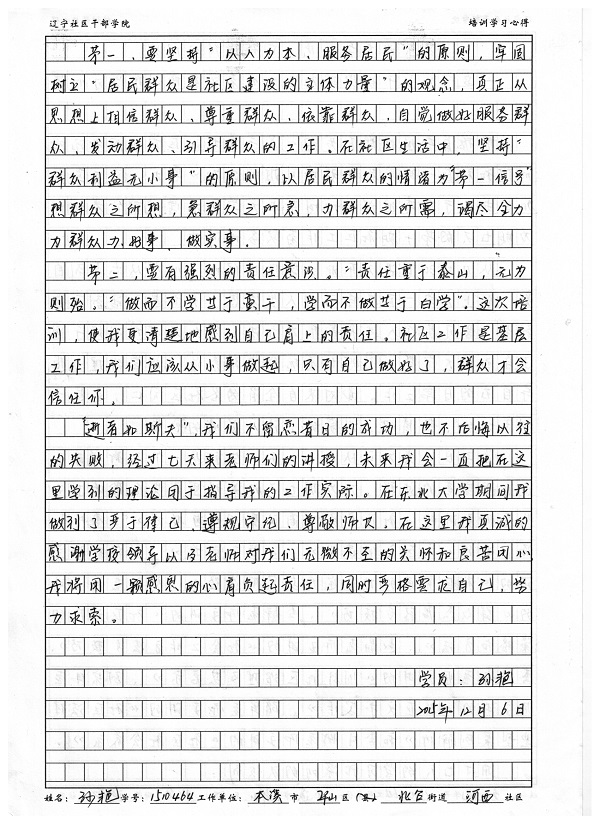 辽宁社区干部学院 培训学习心得
第一、要坚持"以人为本、服务居民"的原则，牢固
树立"居民群众是社区建设的主体力量"的观念，真正从
思想上相信群众、尊重群众、依靠群众，自觉做好服务群
众、发动群众、引导群众的工作。在社区生活中，坚持"
群众利益无小事"的原则，以居民群众的情绪为"第一信号"
想群众之所想，急群众之所急，为群众之所需，竭尽全力
为群众办好事、做实事。
第二，要有强烈的责任意识。"责任重于泰山，无为
则殆。""做而不学苦于蛮干，学而不做苦于白学"。这次培
训，使我更清楚地感到自己肩上的责任。社区工作是基层
工作，我们应该从小事做起，只有自己做好了，群众才会
信任你。
"逝者如斯夫"，我们不留恋昔日的成功，也不后悔以往
的失败，经过七天来老师们的讲授，未来我会一直把在这
里学到的理论用于指导我的工作实际。在东北大学期间我
做到了严于律己、遵规守纪、尊敬师友。在这里我真诚的
感谢学校领导以及老师对我们无微不至的关怀和良苦用心
我将用一颗感恩的心肩负起责任，同时严格要求自己，努
力求索。
学员：孙艳
2015年12月6日
姓名：孙艳 学号：1510464 工作单位：本溪市 平山区（县） 北台街道 河西社区